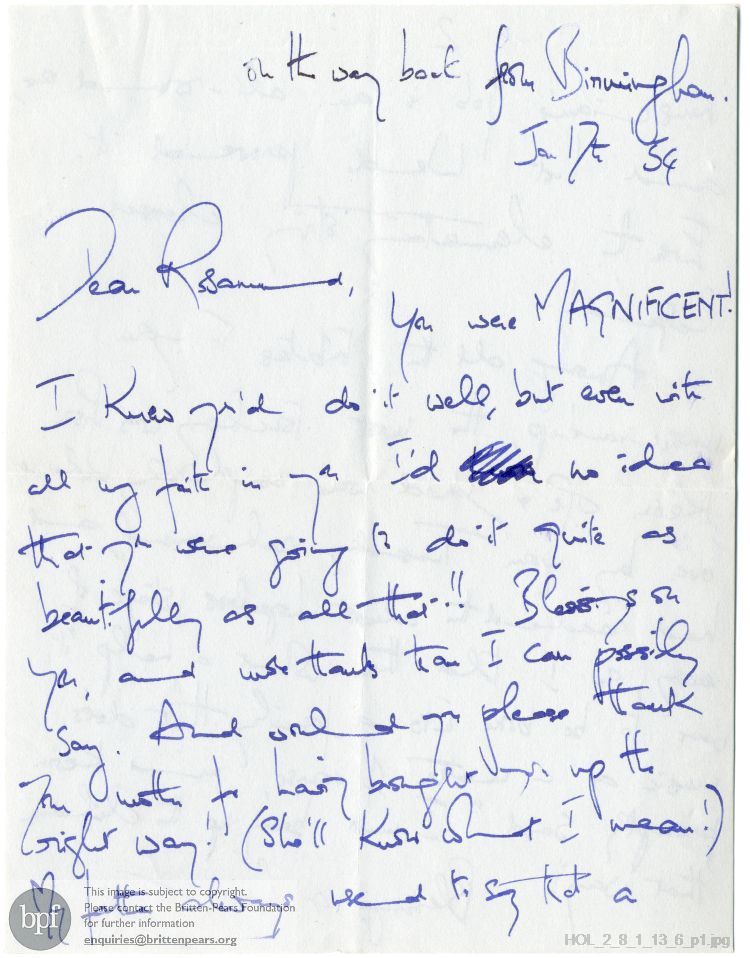 on the way back from Birmingham.
Jan 17th '54
Dear Rosamund,
You were MAGNIFICENT!
I knew you'd do it well, but even with
all my faith in you I'd no idea
that you were going to do it quite as
beautifully as all that!! Blessings on
you, and more thanks than I can possibly
say. And would you please thank
your mother for having brought you up the
right way! (She'll know what I mean!)
My father always used to say that a
This image is subject to copyright.
Please contact the Britten-Pears Foundation
for further information
enquiries@brittenpears.org
bpf
HOL_2_8_1_13_6_p1.jpg